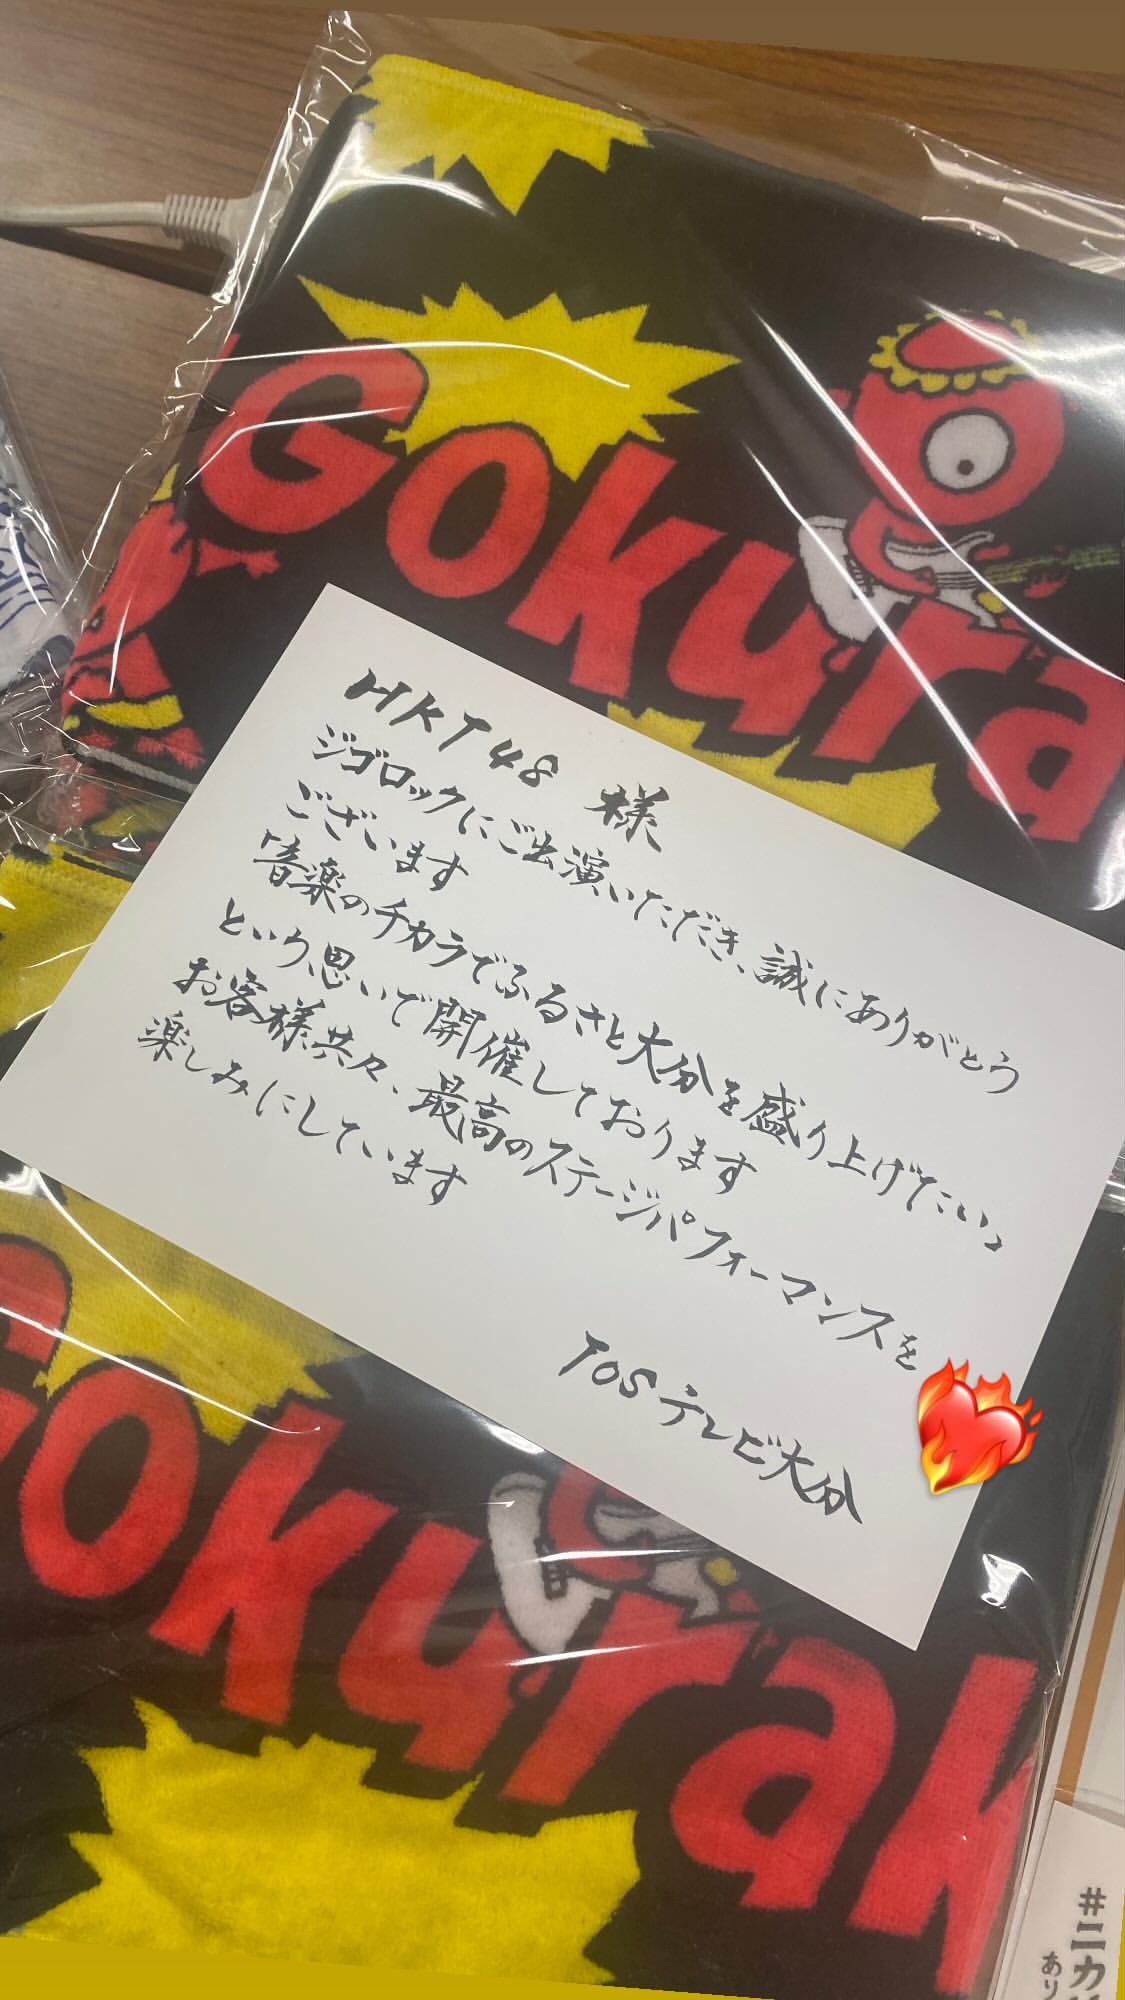 Gokura
HKT48 様
ジゴロックにご出演いただき、誠にありがとう
ございます
「音楽のチカラでふるさと大分を盛り上げたい」
という思いで開催しております
お客様共々、最高のステージパフォーマンスを
楽しみにしています
TOSテレビ大分
Gokurak
#ニカ
あり